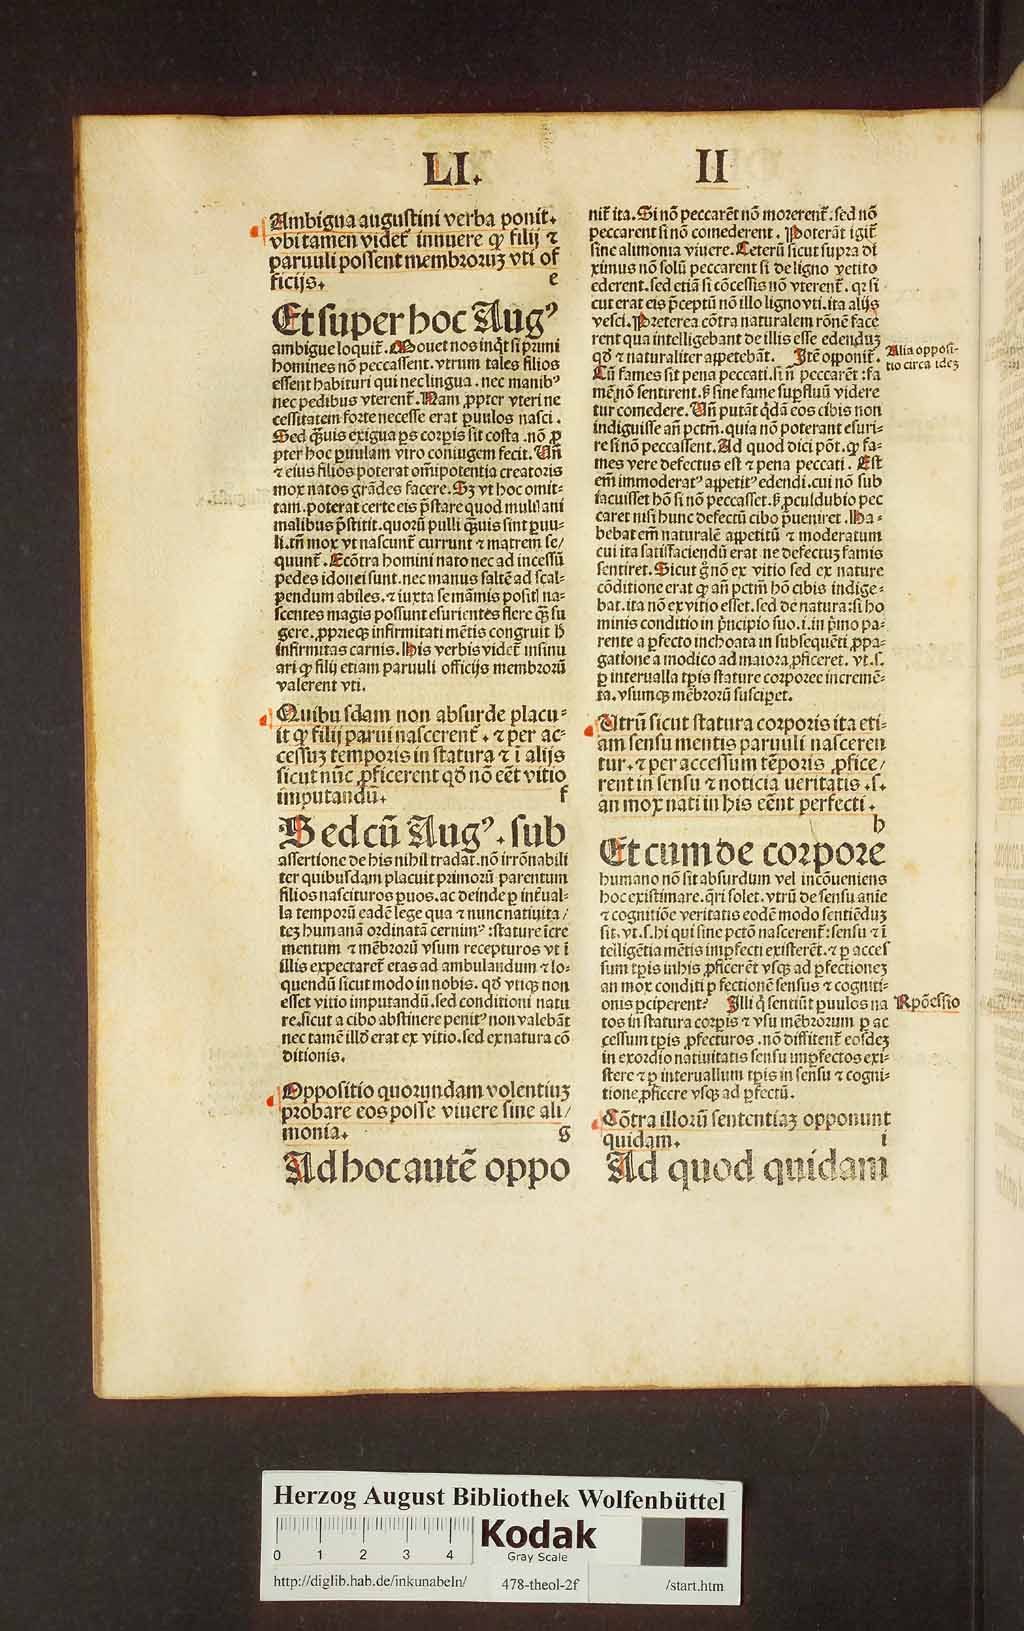 LI. II
Ambigua augustini verba ponit.
vbi tamen videt̄ innuere ꝙ filij ⁊
paruuli possent membroruꝫ vti of
ficijs. e
Et super hoc Augꝰ
ambigue loquit̄. Mouet nos inq̇t si primi
homines nō peccassent. vtrum tales filios
essent habituri qui nec lingua. nec manibꝰ
nec pedibus vterent̄. Nam ꝓpter vteri ne
cessitatem forte necesse erat ꝑuulos nasci.
Sed q̄ꝫuis exigua ꝑs corꝑis sit costa. nō ꝓ
pter hoc ꝑuulam viro coniugem fecit. Vn̄
⁊ eius filios poterat om̄ipotentia creatoris
mox natos grādes facere. Sꝫ vt hoc omit⸗
tam. poterat certe eis p̄stare quod multi ani
malibus p̄stitit. quorū pulli q̄ꝫuis sint ꝑuu⸗
li. tn̄ mox vt nascunt̄ currunt ⁊ matrem se/
quunt̄. Ecōtra homini nato nec ad incessū
pedes idonei sunt. nec manus saltē ad scal⸗
pendum abiles. ⁊ iuxta se māmis positi na⸗
scentes magis possunt esurientes flere q̄ꝫ su
gere. ꝓprieqꝫ infirmitati mētis congruit h̄
infirmitas carnis. His verbis videt̄ insinu
ari ꝙ filij etiam paruuli officijs membrorū
valerent vti.
Quibusdam non absurde placu⸗
it ꝙ filij parui nascerent̄. ⁊ per ac⸗
cessuꝫ temporis in statura ⁊ ī alijs
sicut nūc ꝓficerent qd̄ nō eēt vitio
imputandū. f
Sed cū Augꝰ. sub
assertione de his nihil tradat. nō irrōnabili
ter quibusdam placuit primorū parentum
filios nascituros ꝑuos. ac deinde ꝑ int̄ual⸗
la temporū eadē lege qua ⁊ nunc natiuita/
teꝫ humanā ordinatā cernimꝰ: stature īcre
mentum ⁊ mēbrorū vsum recepturos vt ī
illis expectaret̄ etas ad ambulandum ⁊ lo⸗
quendū sicut modo in nobis. qd̄ vtiqꝫ non
esset vitio imputandū. sed conditioni natu
re. sicut a cibo abstinere penitꝰ non valebāt
nec tamē illd̄ erat ex vitio. sed ex natura cō
ditionis.
Oppositio quorundam volentiuꝫ
probare eos posse viuere sine ali/
monia. g
Ad hoc autē oppo
nit̄ ita. Si nō peccarēt nō morerent̄. sed nō
peccarent si nō comederent. Poterāt igit̄
sine alimonia viuere. Ceterū sicut supra di
ximus nō solū peccarent si de ligno vetito
ederent. sed etiā si cōcessis nō vterent̄. qr si
cut erat eis p̄ceptū nō illo ligno vti. ita alijs
vesci. Preterea cōtra naturalem rōnē face
rent qua intelligebant de illis esse edenduꝫ
qd̄ ⁊ naturaliter appetebāt. Itē opponit̄.
Cū fames sit pena peccati. si n̄ peccarēt: fa
mē nō sentirent. sꝫ sine fame suꝑfluū videre
tur comedere. Vn̄ putāt q̇dā eos cibis non
indiguisse an̄ pctm̄. quia nō poterant esuri⸗
re si nō peccassent. Ad quod dici pōt. ꝙ fa⸗
mes vere defectus est ⁊ pena peccati. Est
em̄ immoderatꝰ appetitꝰ edendi. cui nō sub
iacuisset hō si nō peccasset. sꝫ ꝓculdubio pec
caret nisi hunc defectū cibo p̄ueniret. Ha⸗
bebat em̄ naturalē appetitū ⁊ moderatum
cui ita satisfaciendū erat ne defectuꝫ famis
sentiret. Sicut g̊ nō ex vitio sed ex nature
cōditione erat ꝙ an̄ pctm̄ hō cibis indige⸗
bat. ita nō ex vitio esset. sed de natura: si ho
minis conditio in p̄ncipio suo. i. in p̄mo pa⸗
rente a ꝑfecto inchoata in subsequēti ꝓpa⸗
gatione a modico ad maiora ꝓficeret. vt. s.
ꝑ interualla tꝑis stature corporee incremē⸗
ta. vsumqꝫ mēbrorū susciꝑet.
Vtrū sicut statura corporis ita eti⸗
am sensu mentis paruuli nasceren
tur. ⁊ per accessum tēporis ꝓfice/
rent in sensu ⁊ noticia ueritatis. s.
an mox nati in his eēnt perfecti.
h
Et cum de corpore
humano nō sit absurdum vel incōueniens
hoc existimare. q̄ri solet. vtrū de sensu anie
⁊ cognitiōe veritatis eodē modo sentiēduꝫ
sit. vt. s. hi qui sine pctō nascerent̄: sensu ⁊ ī
telligētia mētis imꝑfecti existerēt. ⁊ ꝑ acces
sum tꝑis in his ꝓficerēt vsqꝫ ad ꝑfectioneꝫ
an mox conditi ꝑfectionē sensus ⁊ cogniti⸗
onis ꝑciperent? Illi q̇ sentiūt ꝑuulos na
tos in statura corꝑis ⁊ vsu mēbrorum ꝑ ac
cessum tꝑis ꝓfecturos. nō diffitent̄ eosdeꝫ
in exordio natiuitatis sensu imꝑfectos exi⸗
stere ⁊ ꝑ interuallum tꝑis in sensu ⁊ cogni⸗
tione ꝓficere vsqꝫ ad ꝑfectū.
Cōtra illorū sententiaꝫ opponunt
quidam. i
Ad quod quidam
Alia opposi⸗
tio circa ideꝫ
Rpōessio
Herzog August Bibliothek Wolfenbüttel
0 1 2 3 4
Kodak
Gray Scale
http://diglib.hab.de/inkunabeln/ 478-theol-2f /start.htm